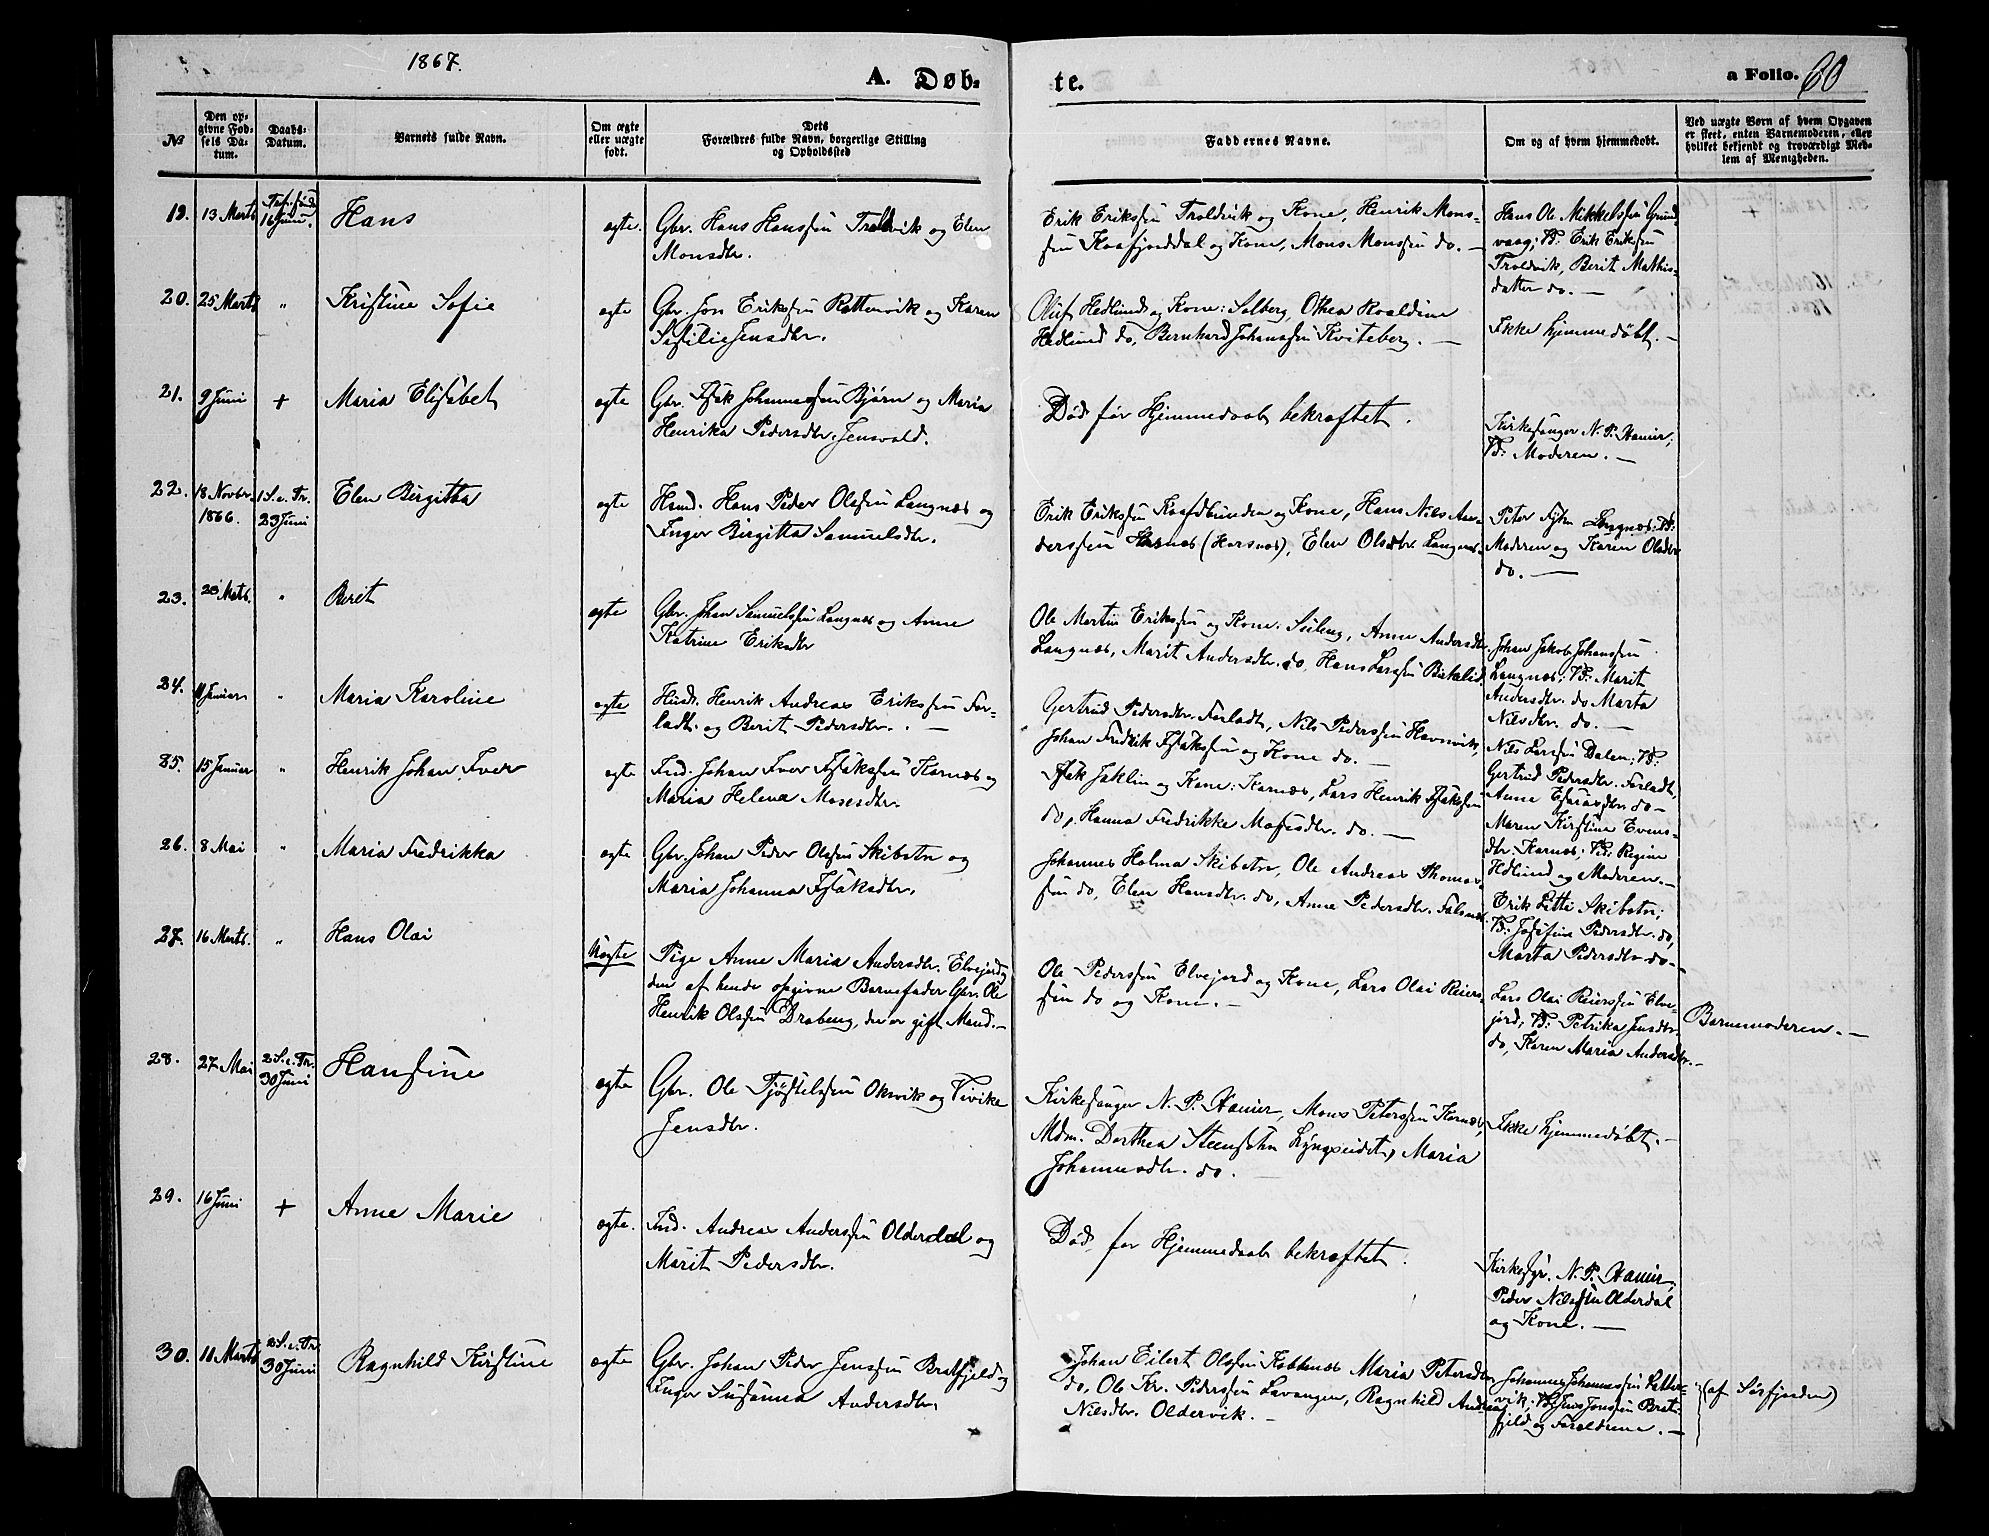 1867.
A. Døb-
te.
a Folio. 60
No
Den op-
givne Fød-
sels Da-
tum.
Daabs-
Datum.
Barnets fulde Navn.
Om ægte
eller uægte
født.
Dets
Forældres fulde Navn, borgerlige Stilling
og Opholdssted
Faddernes Navne.
Om og af hvem hjemmedøbt.
Ved uægte Børn af hvem Opgaven
er skeet, enten Barnemoderen, eller
hvilket bekjendt og troværdigt Med-
lem af Menigheden.
19. 13 Marts 16 Juni. Hans ægte. Gbr. Hans Hanssen Troldvik og Elen
Monsdtr.
Erik Erikssen Troldvik og Kone, Henrik Mons-
sen Kaafjorddal og Kone, Mons Monssen do. —
Hans Ole Mikkelssen Grund-
vaag; Vd: Erik Erikssen
Troldvik, Berit Mathis-
datter do. —
20. 25 Marts " Kristine Sofie ægte Gbr. Jon Erikssen Rottenvik og Karen
Sesilie Jensdtr.
Oluf Hedlund og Kone: Solberg, Othea Roaldine
Hedlund do, Bernhard Johanssen Kviteberg. —
Ikke hjemmedøbt. —
21. 9 Juni + Maria Elisabet ægte Gbr. Isak Johannessen Bjørn og Maria
Henrika Pedersdtr. Jensvold.
Død før Hjemmedaab bekræftet.
Kirkesanger N. P. Hamer;
Vd: Moderen. —
22. 18 Novbr.
1866. 1 S. e. Tr.
23 Juni Elen Birgitta ægte Hmd. Hans Peder Olssen Langnæs og
Inger Birgitta Samuelsdtr.
Erik Erikssen Kaafdbunden og Kone, Hans Nils An-
derssen Horsnæs (Horsnæs), Elen Olsdtr. Langnæs.
Peter Fyhn Langnæs; Vd:
Moderen og Karen Olsdtr
do. —
23. 23 Marts. " Berit ægte Gbr. Johan Samuelssen Langnæs og Anne
Katrine Eriksdtr
Ole Martin Erikssen og Kone: Sieling, Anne Andersdtr
Langnæs, Marit Andersdtr. do, Hans Larssen Birkelid.
Johan Jakob Johanssen
Langnæs; Vd: Marit
Andersdtr. do Marta
Nilsdtr. do. —
24. 11 Januar " Maria Karoline ægte Husd. Henrik Andreas Erikssen For-
ladt. og Berit Pedersdtr. —
Gertrud Pedersdtr. Forladt, Nils Pederssen Havnvik,
Johan Fredrik Isakssen og Kone do. —
Nils Larssen Dalen; Vd:
Gertrud Pedersdtr. Forladt,
Anne Esaiasdtr. do —
25. 15 Januar " Henrik Johan Iver ægte Ind. Johan Iver Isakssen Karnæs og
Maria Helena Mosesdtr.
Isak Jaklin og Kone: Karnæs, Lars Henrik Isakssen
do, Hanna Fredrikke Mosesdtr. do. —
Maren Kirstine Evens-
dtr. Karnæs; Vd: Regine
Hedlund og Moderen. —
26. 8 Mai " Maria Fredrikka ægte Gbr. Johan Peder Olssen Skibotn og
Maria Johanna Isaksdtr.
Johannes Holma Skibotn, Ole Andreas Thomas-
sen do, Elen Hansdtr. do, Anne Pedersdtr. Falsnæs.
Erik Litti Skibotn;
Vd: Josefine Pedersdtr. do,
Marta Pedersdtr do. —
27. 16 Marts. " Hans Olai Uægte Pige Anne Maria Andersdtr. Elvejord,
den af hende opgivne Barnefader Gbr. Ole
Henrik Olssen Drabeng, der er gift Mand. —
Ole Pederssen Elvejord og Kone, Lars Olai Reiers-
sen do og Kone. —
Lars Olai Reierssen Elve-
jord; Vd: Petrika Jensdtr
do, Karen Maria Andersdtr. —
Barnemoderen. —
28. 27 Mai 2 S. e. Tr.
30 Juni Hansine ægte Gbr. Ole Tjøstelssen Oksvik og Vivika
Jensdtr.
Kirkesanger N. P. Hamer, Mons Peterssen Karnæs,
Mdm. Dorthea Steensohn Lyngseidet, Maria
Johannesdtr. do.
Ikke hjemmedøbt. —
29. 16 Juni + Anne Marie ægte. Ind. Andreas Anderssen Olderdal og
Marit Pedersdtr.
Død før Hjemmedaab bekræftet.
Kirkesgr. N. P. Hamer,
Peder Nilssen Olderdal
og Kone. —
30. 11 Marts 2 S. e. Tr.
30 Juni Ragnhild Kirstine ægte Gbr. Johan Peder Jenssen Bratfjeld og
Inger Susanna Andersdtr.
Johan Eilert Olssen Kobbnæs Maria Petersdtr.
do, Ole Kr. Pederssen Lavangen, Ragnhild Andrea
Nilsdtr. Oldervik. —
Johannes Johannessen Latter-
vik; Vd: Jens Jonssen Brat-
fjeld og Forældrene. —
(af Sørfjorden)